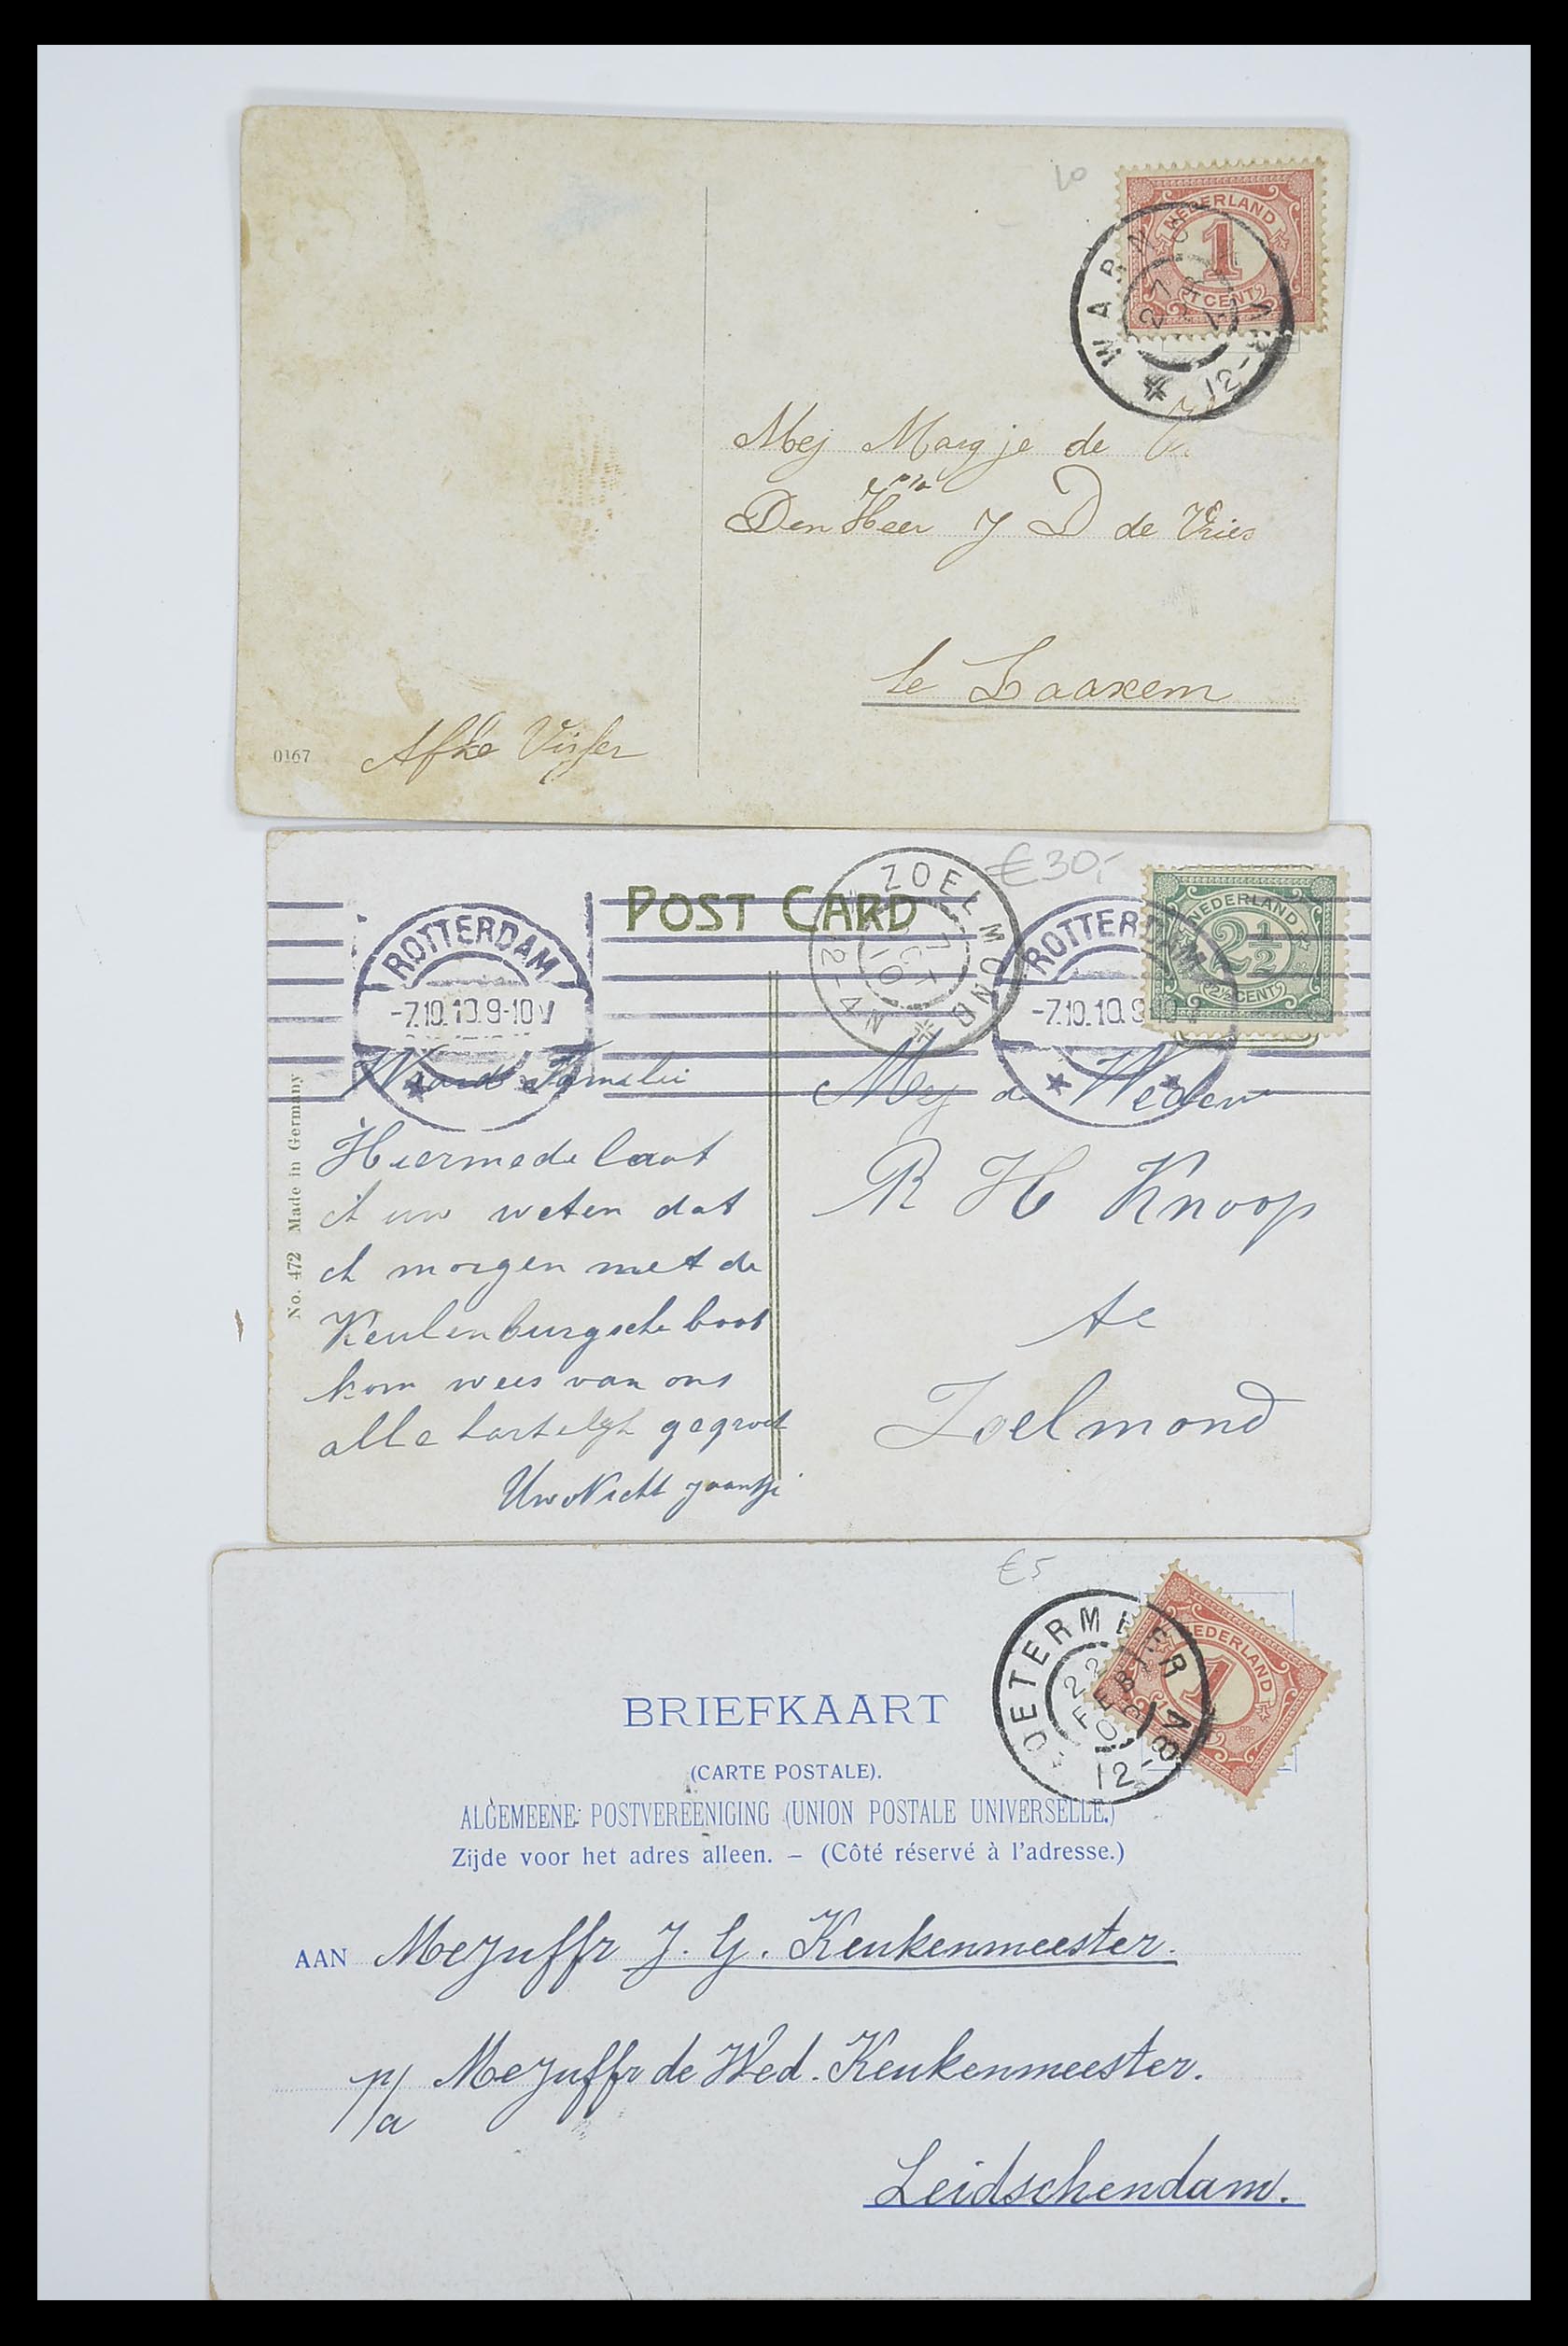 10
NEDERLAND
1
CENT
WARNS
27
12-
Mej Margje de V
p/a
Den Heer J D de Vries
te Laaxem
Afke Visser
0167
€30,-
POST CARD
ZOELMOND
7 OCT 10
2-4 N
ROTTERDAM
-7.10.10.9-10V
ROTTERDAM
-7.10.10.9-10V
NEDERLAND
2½
2½ CENT
No. 472 Made in Germany
Waarde Familie
Hiermede laat
ik uw weten dat
ik morgen met de
Keulenburgsche boot
kom wees van ons
alle hartelijk gegroet
Uw Nicht Jaantje
Mej de Weduw
R H Knoop
te
Zoelmond
€5
ZOETERMEER
22 FEB 08
12-
NEDERLAND
1
BRIEFKAART
(CARTE POSTALE).
ALGEMEENE POSTVEREENIGING (UNION POSTALE UNIVERSELLE.)
Zijde voor het adres alleen. – (Côté réservé à l'adresse.)
AAN Mejuffr J. G. Keukenmeester.
p/a Mejuffr de Wed. Keukenmeester.
Leidschendam.